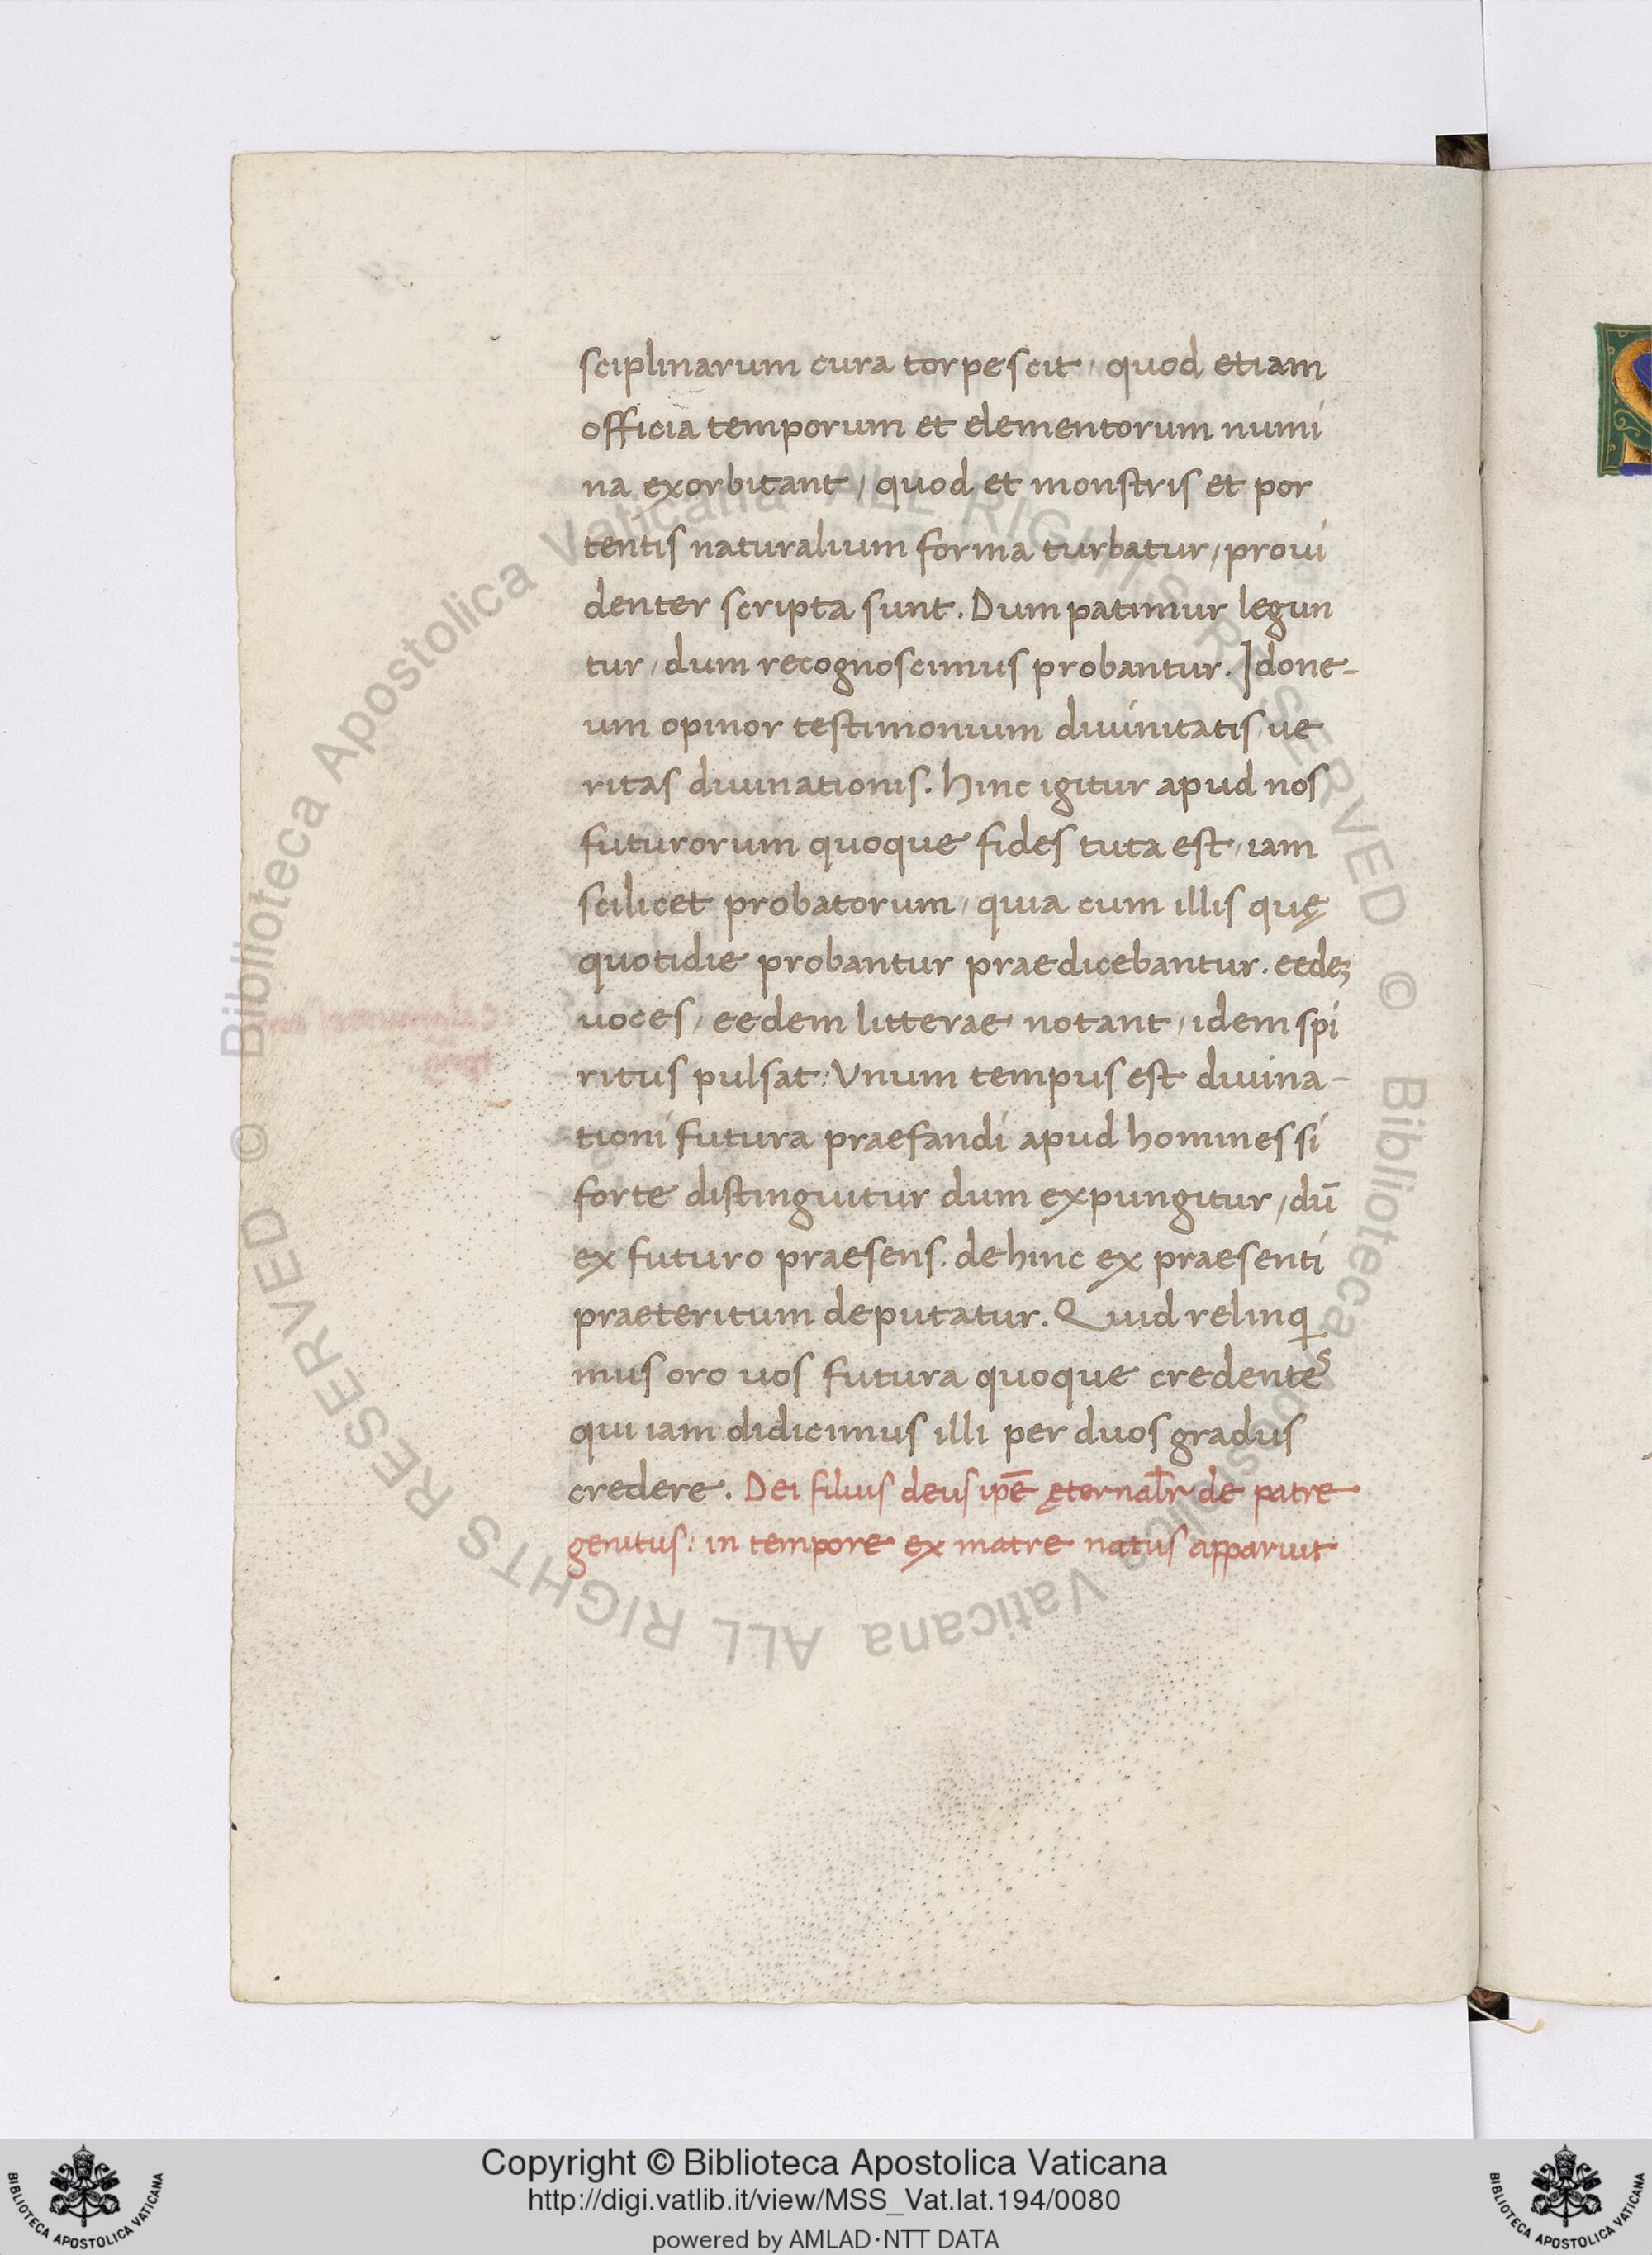 sciplinarum cura torpescit, quod etiam
officia temporum et elementorum numi
na exorbitant, quod et monstris et por
tentis naturalium forma turbatur, proui
denter scripta sunt. Dum patimur legun
tur, dum recognoscimus probantur. Idone-
um opinor testimonium diuinitatis ue
ritas diuinationis. hinc igitur apud nos
futurorum quoque fides tuta est, iam
scilicet probatorum, quia cum illis quę
quotidie probantur praedicebantur. eedeꝫ
uoces, eedem litterae notant, idem spi
ritus pulsat: Vnum tempus est diuina-
tioni futura praefandi apud homines si
forte distinguitur dum expungitur, dū
ex futuro praesens. dehinc ex praesenti
praeteritum deputatur. Quid relinq
mus oro uos futura quoque credentes
qui iam didicimus illi per duos gradus
credere. Dei filius deus ip̄e ęternalr̄ de patre
genitus: in tempore ex matre natus apparuit
© Biblioteca Apostolica Vaticana ALL RIGHTS RESERVED © Biblioteca Apostolica Vaticana ALL RIGHTS RESERVED
Copyright © Biblioteca Apostolica Vaticana
http://digi.vatlib.it/view/MSS_Vat.lat.194/0080
powered by AMLAD·NTT DATA
BIBLIOTECA APOSTOLICA VATICANA
BIBLIOTECA APOSTOLICA VATICANA